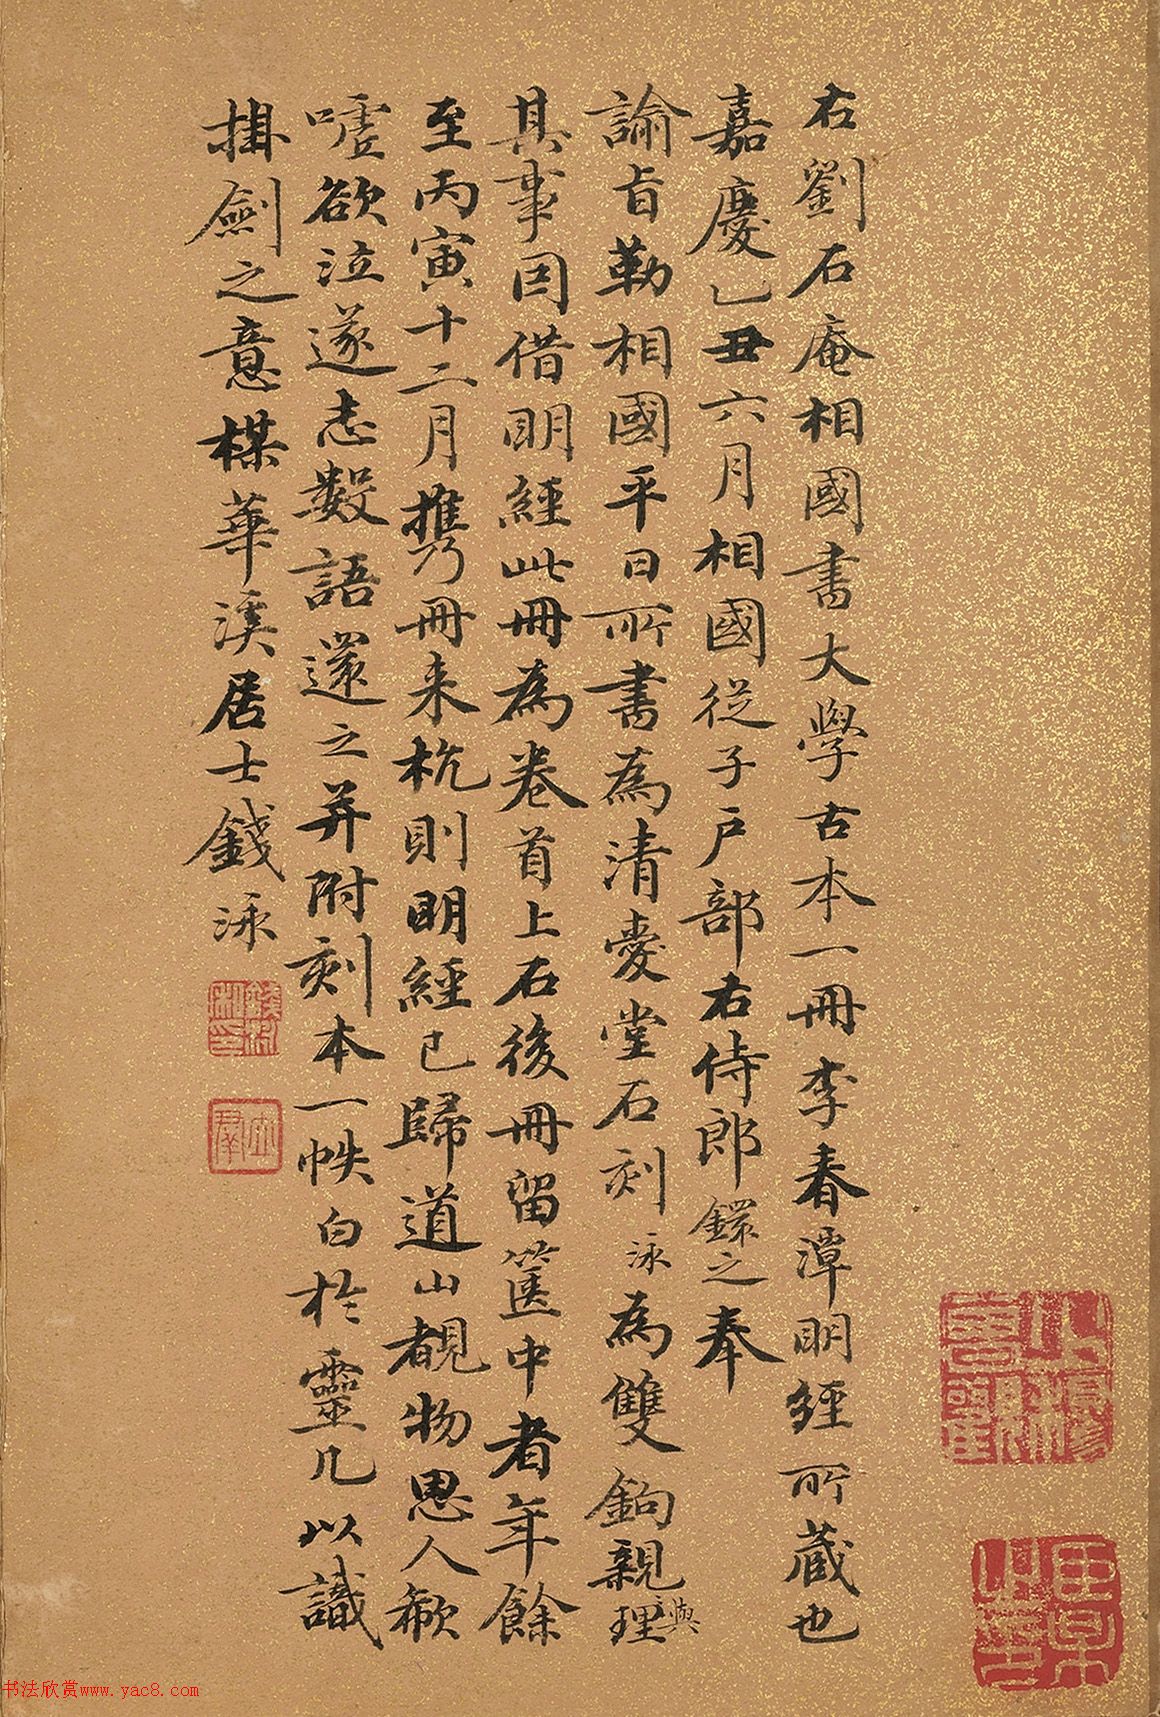 右劉石庵相國書大學古本一冊李春潭明經所藏也
嘉慶乙丑六月相國從子戶部右侍郎鐶之奉
諭旨勒相國平日所書為清愛堂石刻泳為雙鉤親理與
其事因借明經此冊為卷首上石後冊留篋中者年餘
至丙寅十二月攜冊来杭則明經已歸道山覩物思人欷
噓欲泣遂志數語還之并附刻本一帙白於靈几以識
掛劍之意楳華溪居士錢泳
书法欣赏www.yac8.com